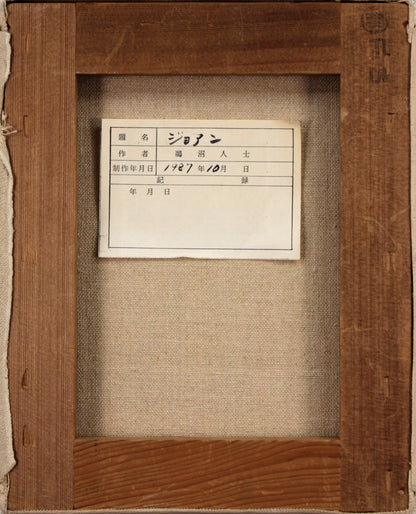 題名 ジョアン
作者 鴨沼人士
制作年月日 1987年10月 日
記録
年 月 日
F3